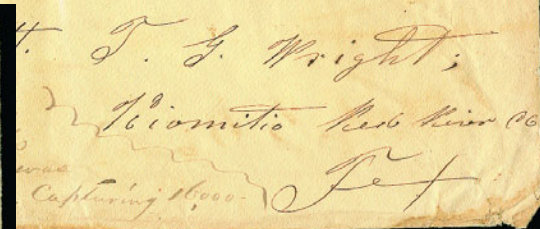 T. G. Wright;
Kiomitio Red River Co
Tex
was
Capturing 16,000-